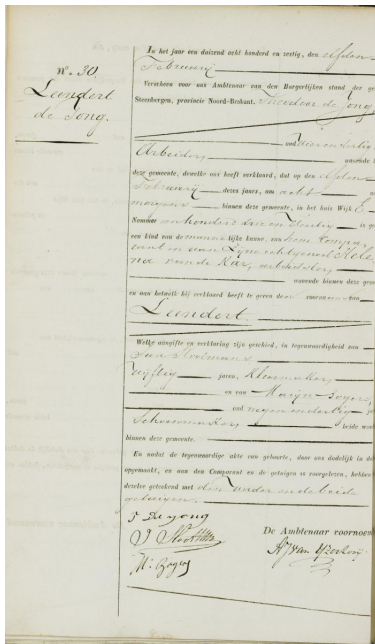 N.º 30.
Leendert
de Jong.
In het jaar een duizend acht honderd en zestig, den elfden
Februarij
Verscheen voor ons Ambtenaar van den Burgerlijken stand der ge
Steenbergen, provincie Noord-Brabant, Theodoor de Jong,
oud vier en dertig
Arbeider, wonende b
deze gemeente, dewelke ons heeft verklaard, dat op den elfden
Februarij dezes jaars, om acht
morgens binnen deze gemeente, in het huis Wijk E.
Nommer een honderd drie en veertig is ge
een kind van de mannelijke kunne, van hem Compa
rant en van zijne echtgenoot Hele
na van de Kar, arbeidster,
wonende binnen deze geme
en aan hetwelk hij verklaard heeft te geven den voornaam van
Leendert.
Welke aangifte en verklaring zijn geschied, in tegenwoordigheid van
vijftig jaren, Kleermaker
en van Marijn Bogers,
oud negen en dertig
Schoenmaker beide wo
binnen deze gemeente.
En nadat de tegenwoordige akte van geboorte, door ons dadelijk in de
opgemaakt, en aan den Comparant en de getuigen is voorgelezen, hebben
dezelve geteekend met den Vader en de beide
getuigen.
T De jong
De Ambtenaar voornoem
M. Bogers